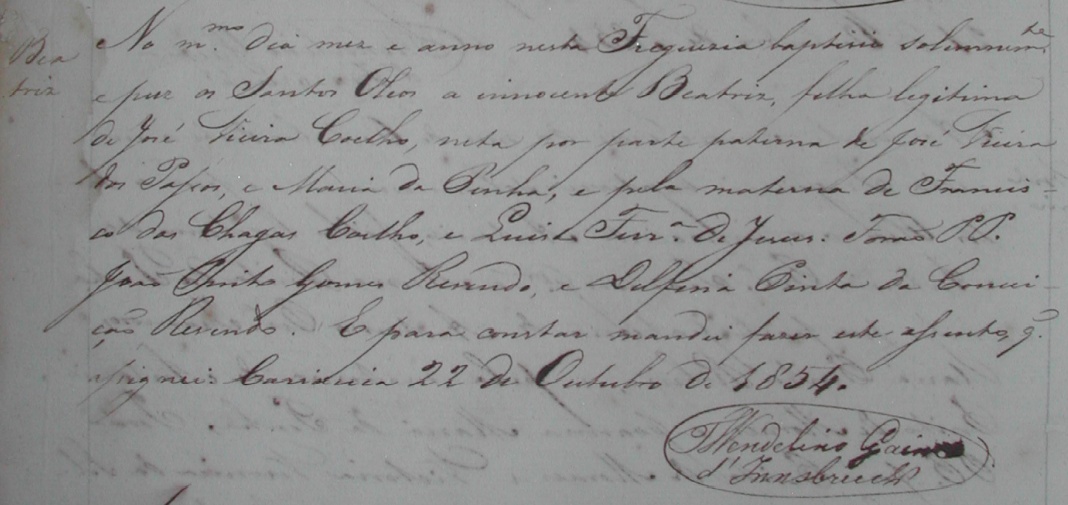 Bea
triz
No m.mo dia mez e anno nesta Freguezia baptisei solemnem.te
e puz os Santos Oleos a innocente Beatriz, filha legitima
de José Vieira Coelho, neta por parte paterna de José Vieira
dos Passos, e Maria da Penha, e pela materna de Francis-
co das Chagas Coelho, e Luisa Ferr.a de Jesus. Forão PP.
João Pinto Gomes Resendo, e Delfina Pinta da Concei-
ção Resendo. E para constar mandei fazer este assento, q.
assignei. Cariacica 22 de Outubro de 1854.
Wendelino
d'Innsbruck